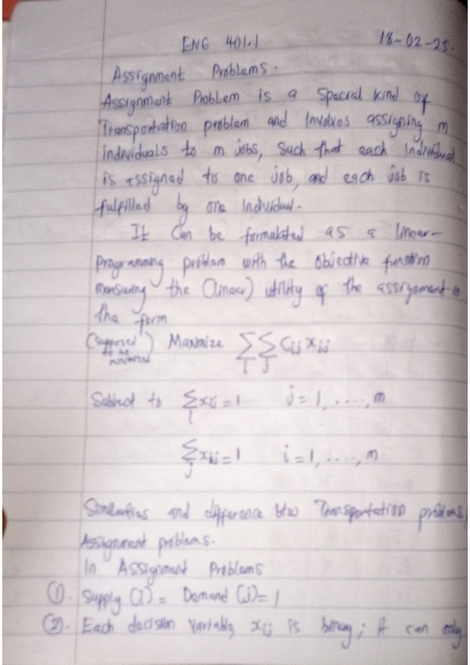 ENG 401.1 18-02-25.
Assignment Problems.
Assignment Problem is a Special kind of
Transportation problem and Involves assigning m
individuals to m jobs, Such that each Individual
is assigned to one job, and each job is
fulfilled by one Individual.
It Can be formulated as a linear-
Programming problem with the objective function
measuring the (linear) utility of the assignment in
the form
(supposed to be minimized) Maximize ∑∑ Cij xij
i j
Subject to ∑xij = 1 j = 1, ...., m
i
∑xij = 1 i = 1, ...., m
j
Similarities and difference btw Transportation problems
Assignment problems.
In Assignment Problems
(1). Supply (i) = Demand (j) = 1
(2). Each decision Variable xij is binary; it can only